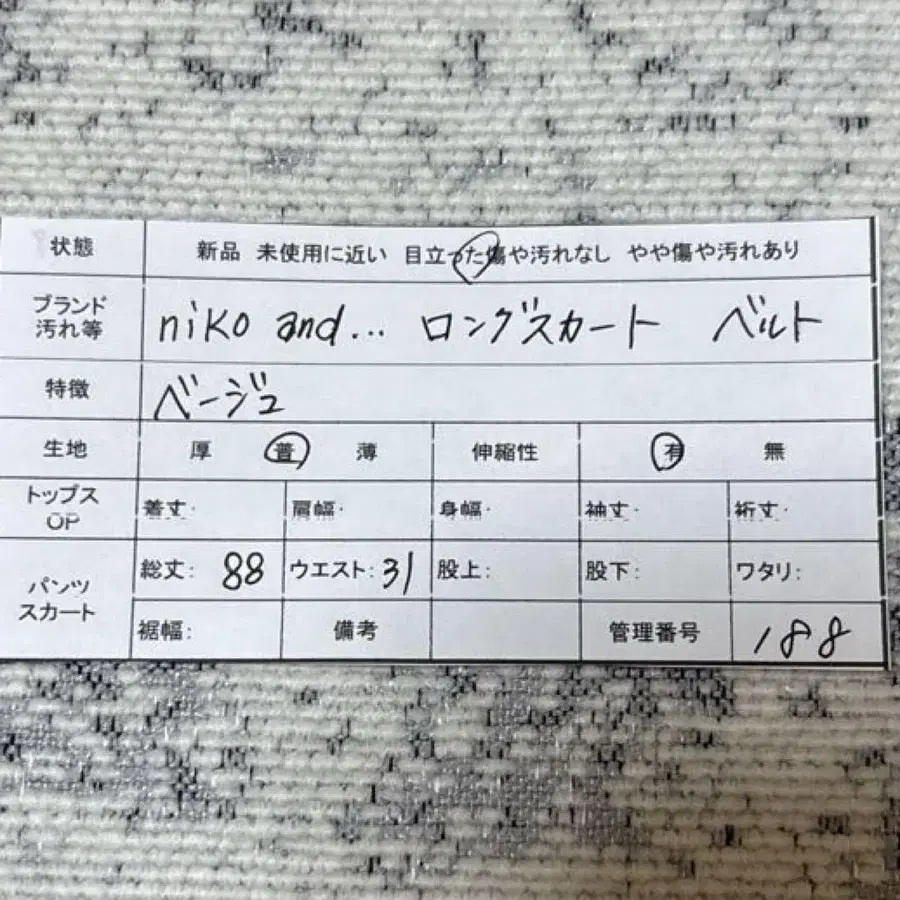 状態 新品 未使用に近い 目立った傷や汚れなし やや傷や汚れあり
ブランド
汚れ等 niko and... ロングスカート ベルト
特徴 ベージュ
生地 厚 普 薄 伸縮性 有 無
トップス
OP 着丈: 肩幅: 身幅: 袖丈: 裄丈:
パンツ
スカート 総丈: 88 ウエスト: 31 股上: 股下: ワタリ:
裾幅: 備考 管理番号 188